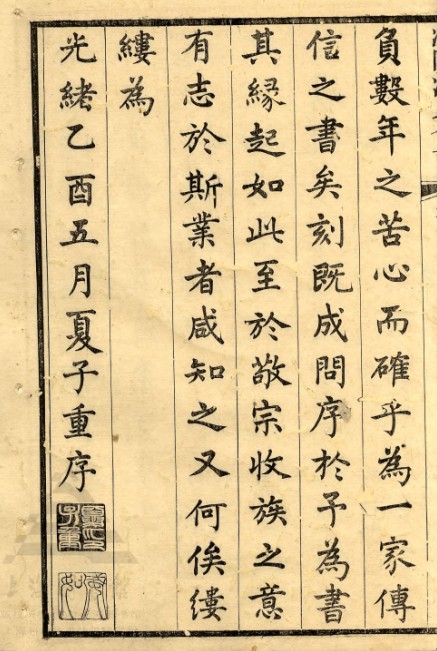 負數年之苦心而確乎為一家傳
信之書矣刻既成問序於予為書
其緣起如此至於敬宗收族之意
有志於斯業者咸知之又何俟縷
縷為
光緒乙酉五月夏子重序